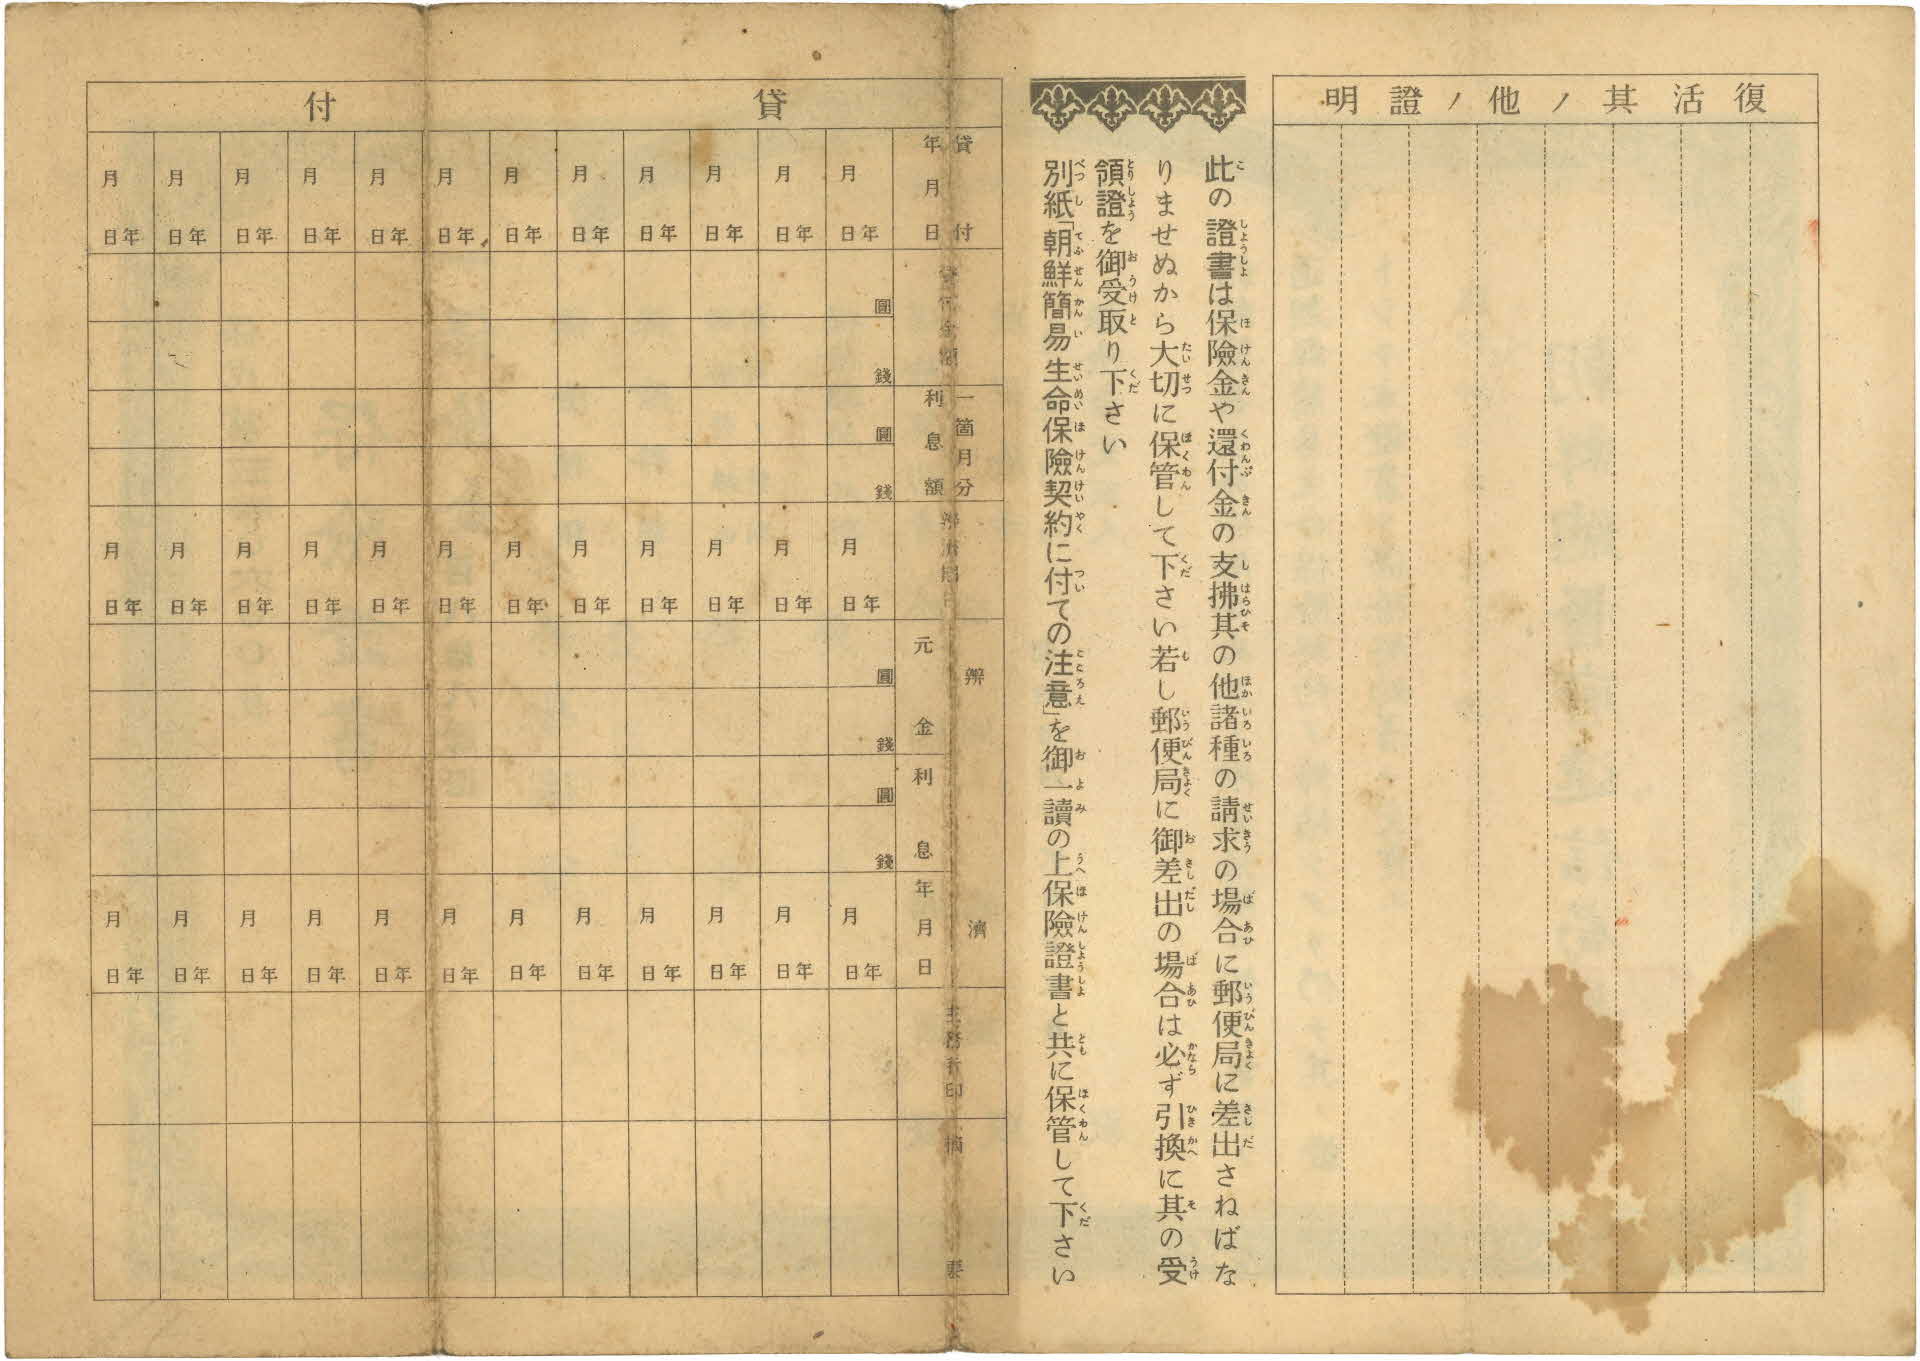 復活其ノ他ノ證明
此の證書は保險金や還付金の支拂其の他諸種の請求の場合に郵便局に差出さねばな
りませぬから大切に保管して下さい若し郵便局に御差出の場合は必ず引換に其の受
領證を御受取り下さい
別紙「朝鮮簡易生命保險契約に付ての注意」を御一讀の上保險證書と共に保管して下さい
貸付
貸付
年月日
貸付金額
一箇月分
利息額
辨濟
元金
利息
年月日
主務者印
摘要
年月日
年月日
年月日
年月日
年月日
年月日
年月日
年月日
年月日
年月日
年月日
圓
錢
圓
錢
年月日
年月日
年月日
年月日
年月日
年月日
年月日
年月日
年月日
年月日
年月日
圓
錢
圓
錢
年月日
年月日
年月日
年月日
年月日
年月日
年月日
年月日
年月日
年月日
年月日